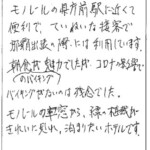 モノレールの県庁前駅に近くて
便利で、ていねいな接客で
那覇出張の際には利用しています。
朝食が魅力でしたが、コロナの影響で
(のバイキング)
バイキングがないのは残念でした。
モノレールの車窓から、緑の植栽が
きれいに見れ、泊まりたいホテルです。